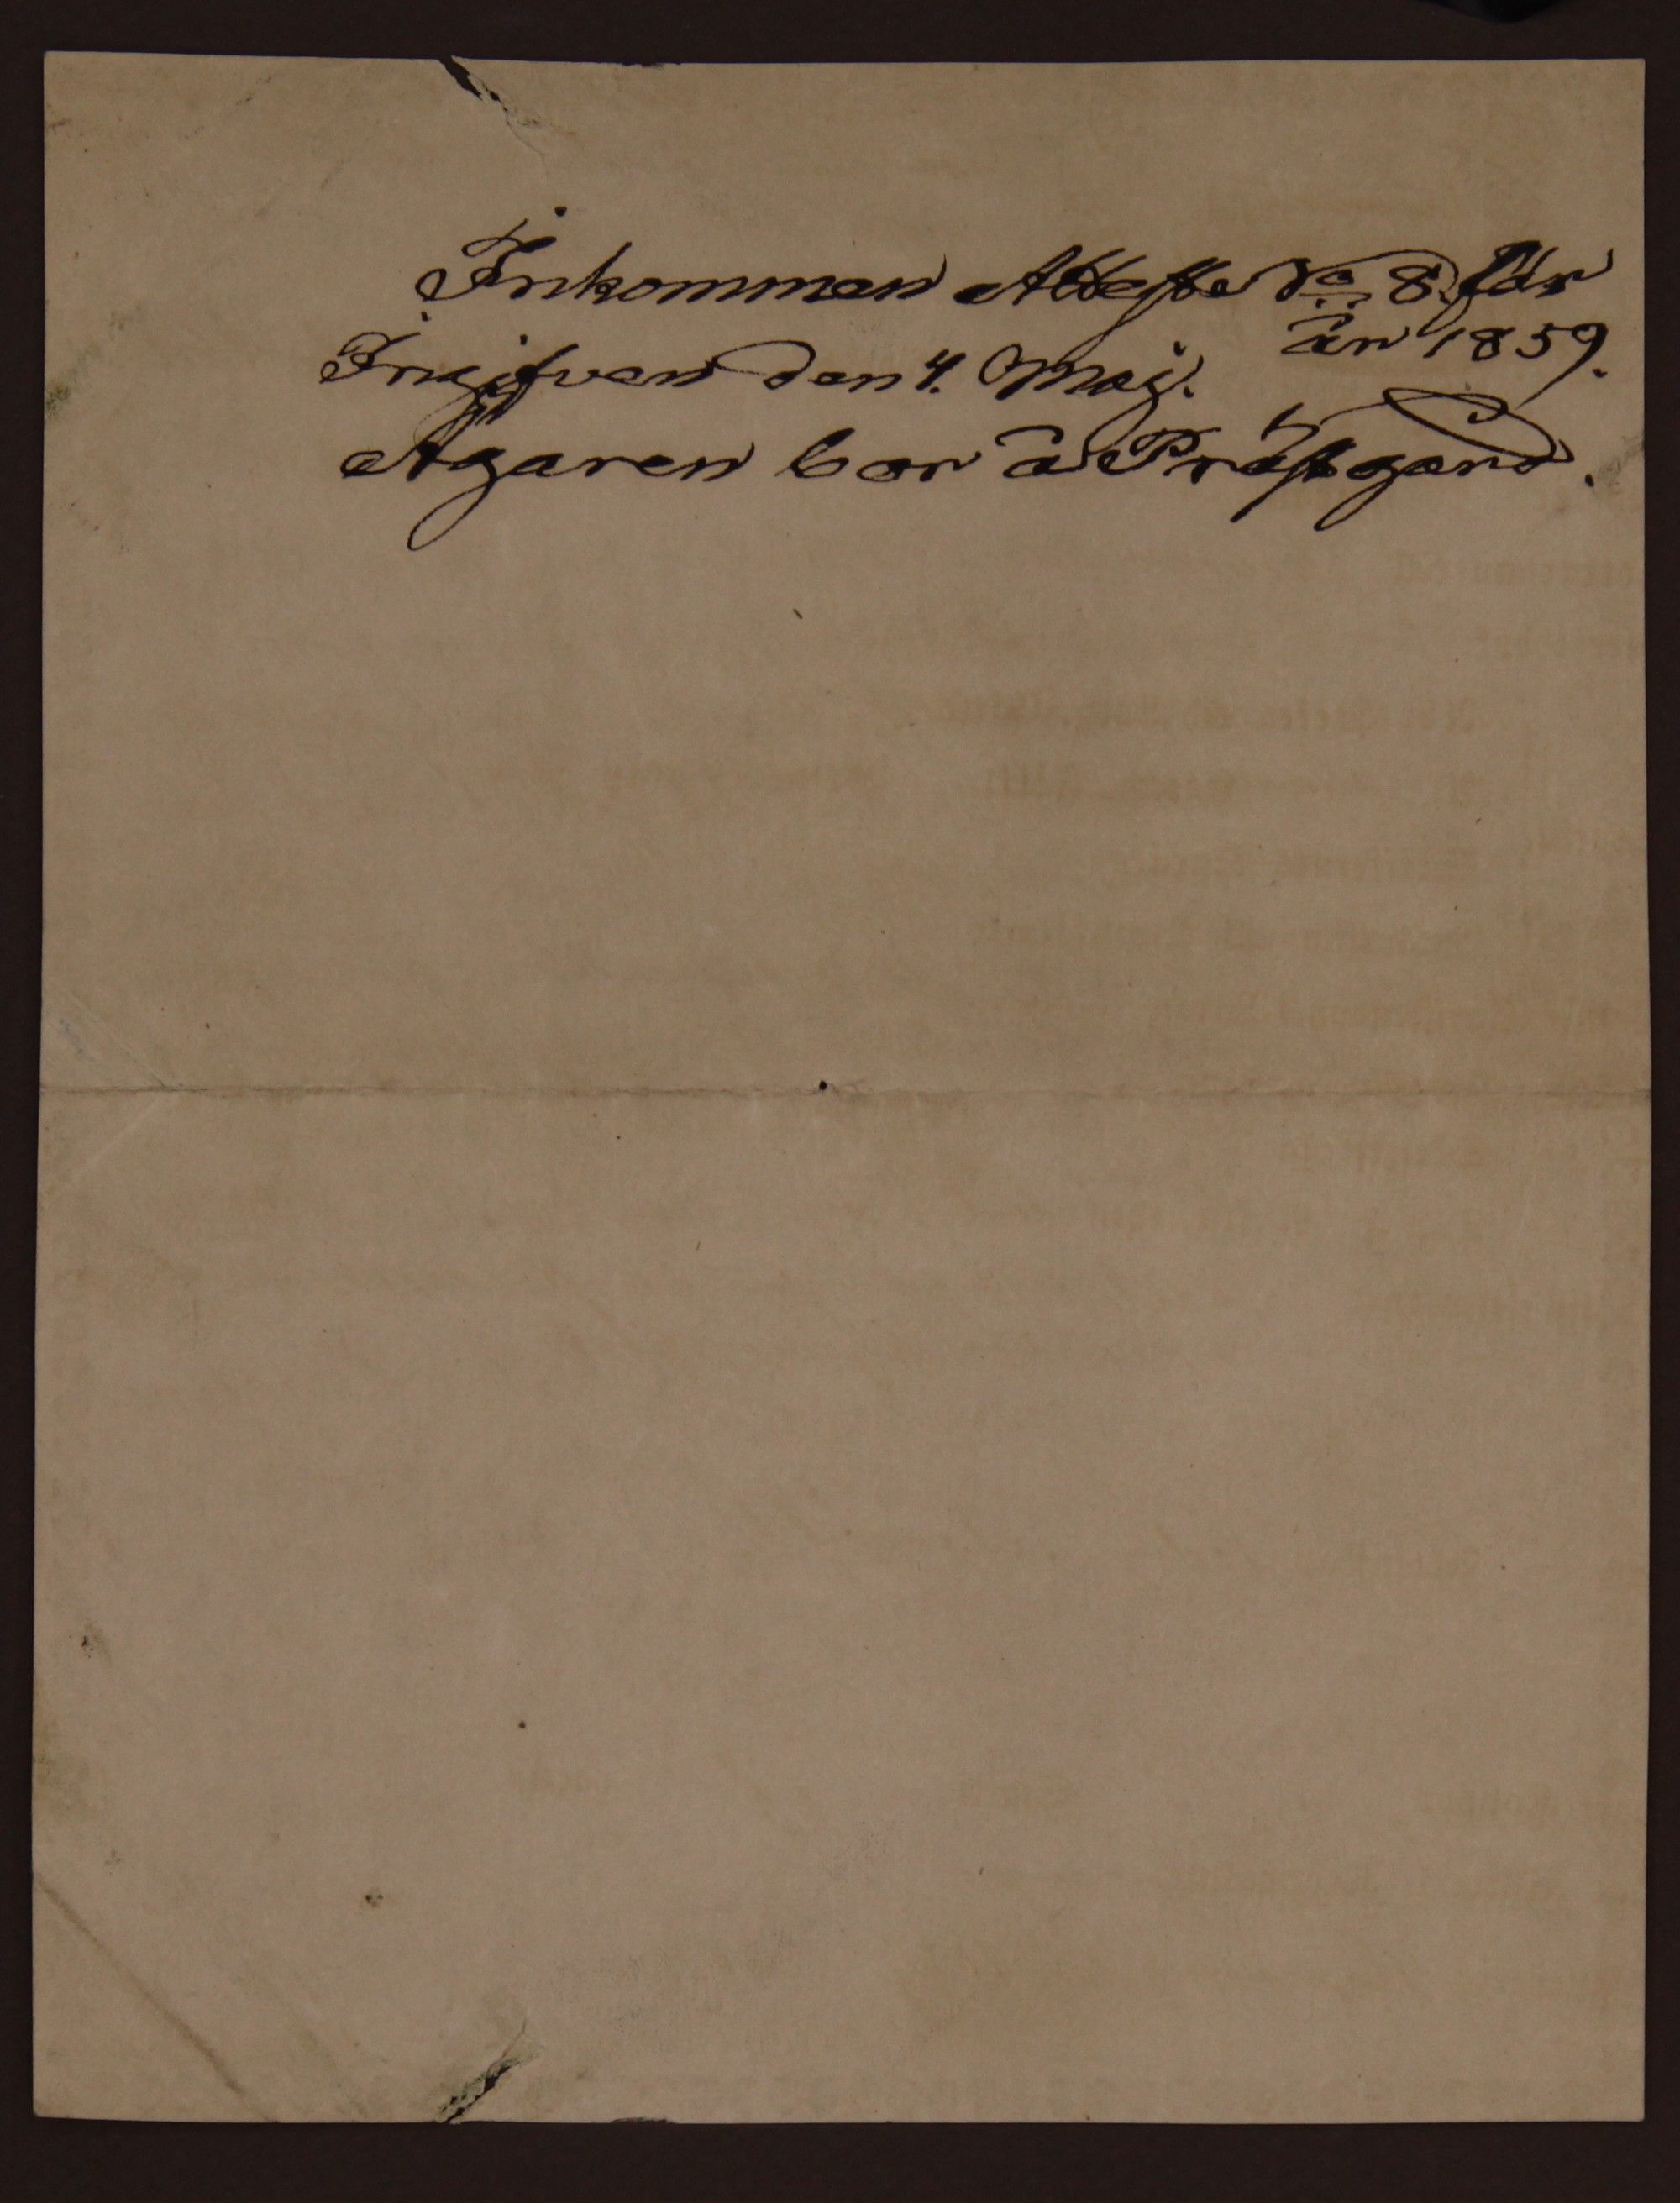 Inkommen Atteste No 8. för
år 1859.
Ingifven den 4. Maj.
Ägaren bor å Prästgård.